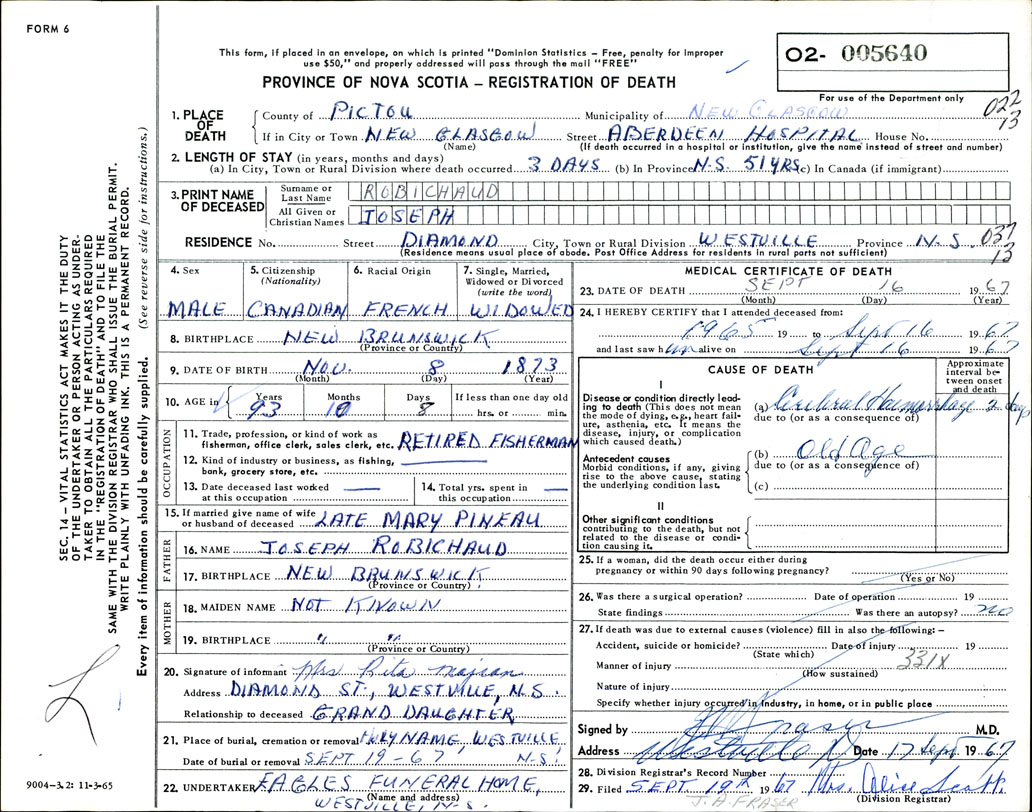 FORM 6
This form, if placed in an envelope, on which is printed "Dominion Statistics – Free, penalty for improper
use $50," and properly addressed will pass through the mail "FREE"
PROVINCE OF NOVA SCOTIA – REGISTRATION OF DEATH
02- 005640
For use of the Department only
022
13
1. PLACE OF DEATH
County of PICTOU Municipality of NEW GLASGOW
If in City or Town NEW GLASGOW Street ABERDEEN HOSPITAL House No.
(Name) (If death occurred in a hospital or institution, give the name instead of street and number)
2. LENGTH OF STAY (in years, months and days)
(a) In City, Town or Rural Division where death occurred 3 DAYS (b) In Province N.S. 51 YRS (c) In Canada (if immigrant)
3. PRINT NAME OF DECEASED
Surname or Last Name ROBICHAUD
All Given or Christian Names JOSEPH
RESIDENCE No. Street DIAMOND City, Town or Rural Division WESTVILLE Province N.S. 037
13
(Residence means usual place of abode. Post Office Address for residents in rural parts not sufficient)
4. Sex MALE
5. Citizenship (Nationality) CANADIAN
6. Racial Origin FRENCH
7. Single, Married, Widowed or Divorced (write the word) WIDOWED
8. BIRTHPLACE NEW BRUNSWICK
(Province or Country)
9. DATE OF BIRTH NOV. 8 1873
(Month) (Day) (Year)
10. AGE in Years 93 Months 10 Days 8 If less than one day old hrs. or min.
OCCUPATION
11. Trade, profession, or kind of work as
fisherman, office clerk, sales clerk, etc. RETIRED FISHERMAN
12. Kind of industry or business, as fishing,
bank, grocery store, etc.
13. Date deceased last worked
at this occupation
14. Total yrs. spent in
this occupation
15. If married give name of wife
or husband of deceased LATE MARY PINEAU
FATHER
16. NAME JOSEPH ROBICHAUD
17. BIRTHPLACE NEW BRUNSWICK
(Province or Country)
MOTHER
18. MAIDEN NAME NOT KNOWN
19. BIRTHPLACE " "
(Province or Country)
20. Signature of informant Mrs Rita
Address DIAMOND ST., WESTVILLE, N.S.
Relationship to deceased GRAND DAUGHTER
21. Place of burial, cremation or removal HOLY NAME, WESTVILLE,
Date of burial or removal SEPT 19-67 N.S.
22. UNDERTAKER EAGLES FUNERAL HOME,
(Name and address)
WESTVILLE, N.S.
MEDICAL CERTIFICATE OF DEATH
23. DATE OF DEATH SEPT 16 1967
(Month) (Day) (Year)
24. I HEREBY CERTIFY that I attended deceased from:
1965 19 to Sept 16 1967
and last saw him alive on Sept 16 1967
CAUSE OF DEATH
Approximate interval between onset and death
I
Disease or condition directly leading to death (This does not mean the mode of dying, e.g., heart failure, asthenia, etc. It means the disease, injury, or complication which caused death.)
(a) Cerebral Haemorrhage 2 days
due to (or as a consequence of)
Antecedent causes
Morbid conditions, if any, giving rise to the above cause, stating the underlying condition last.
(b) Old Age
due to (or as a consequence of)
(c)
II
Other significant conditions
contributing to the death, but not related to the disease or condition causing it.
25. If a woman, did the death occur either during
pregnancy or within 90 days following pregnancy?
(Yes or No)
26. Was there a surgical operation? Date of operation 19
State findings Was there an autopsy? no
27. If death was due to external causes (violence) fill in also the following: –
Accident, suicide or homicide? Date of injury 19
(State which)
331X
Manner of injury
(How sustained)
Nature of injury
Specify whether injury occurred in industry, in home, or in public place
Signed by J A Fraser M.D.
Address Westville Date 17 Sept. 1967
28. Division Registrar's Record Number
29. Filed SEPT 19th 1967 Mrs. Alice Scott.
(Division Registrar)
J.A. FRASER
SEC. 14 – VITAL STATISTICS ACT MAKES IT THE DUTY
OF THE UNDERTAKER OR PERSON ACTING AS UNDER-
TAKER TO OBTAIN ALL THE PARTICULARS REQUIRED
IN THE "REGISTRATION OF DEATH" AND TO FILE THE
SAME WITH THE DIVISION REGISTRAR WHO SHALL ISSUE THE BURIAL PERMIT.
WRITE PLAINLY WITH UNFADING INK. THIS IS A PERMANENT RECORD.
Every item of information should be carefully supplied. (See reverse side for instructions.)
9004-3.2: 11-3-65